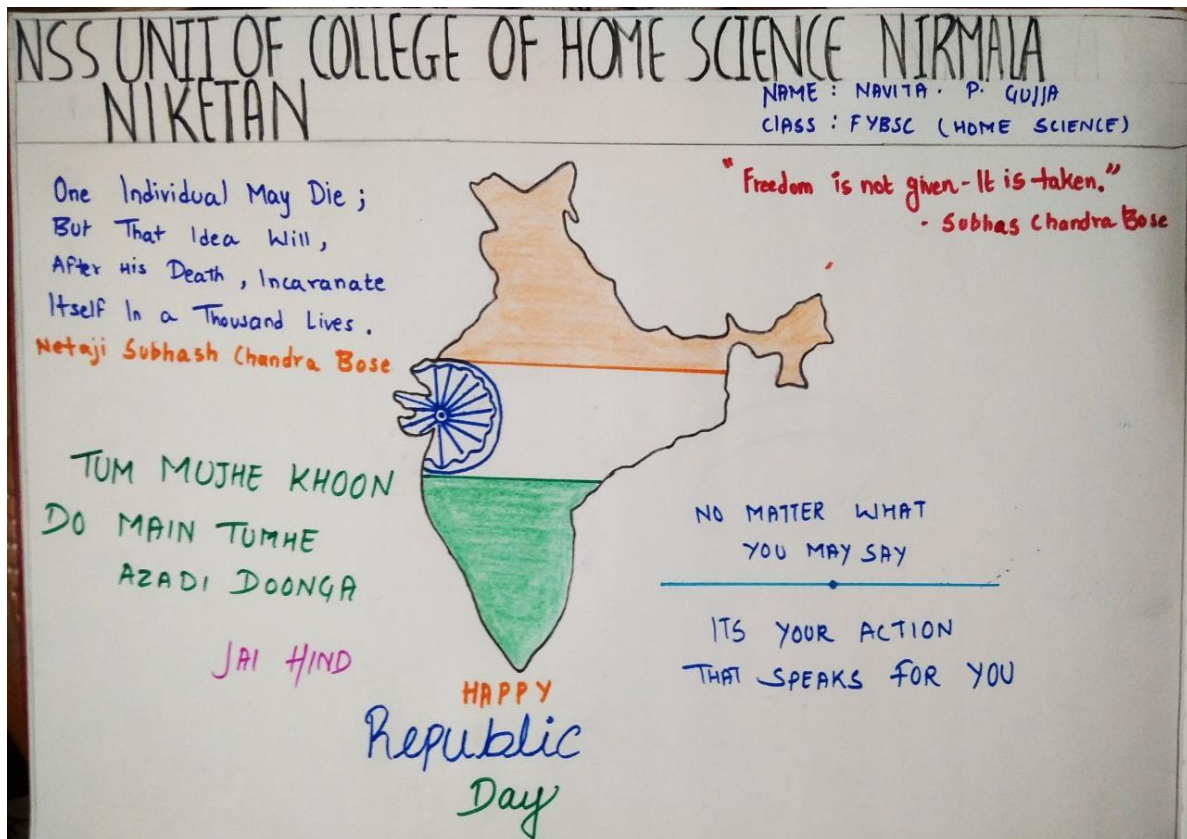 NSS UNIT OF COLLEGE OF HOME SCIENCE NIRMALA
NIKETAN
NAME : NAVITA . P. GUJJA
CLASS : FYBSC (HOME SCIENCE)
One Individual May Die ;
But That Idea Will ,
After His Death , Incaranate
Itself In a Thousand Lives .
Netaji Subhash Chandra Bose
"Freedom is not given - It is taken."
- Subhas Chandra Bose
TUM MUJHE KHOON
DO MAIN TUMHE
AZADI DOONGA
JAI HIND
NO MATTER WHAT
YOU MAY SAY
ITS YOUR ACTION
THAT SPEAKS FOR YOU
HAPPY
Republic
Day